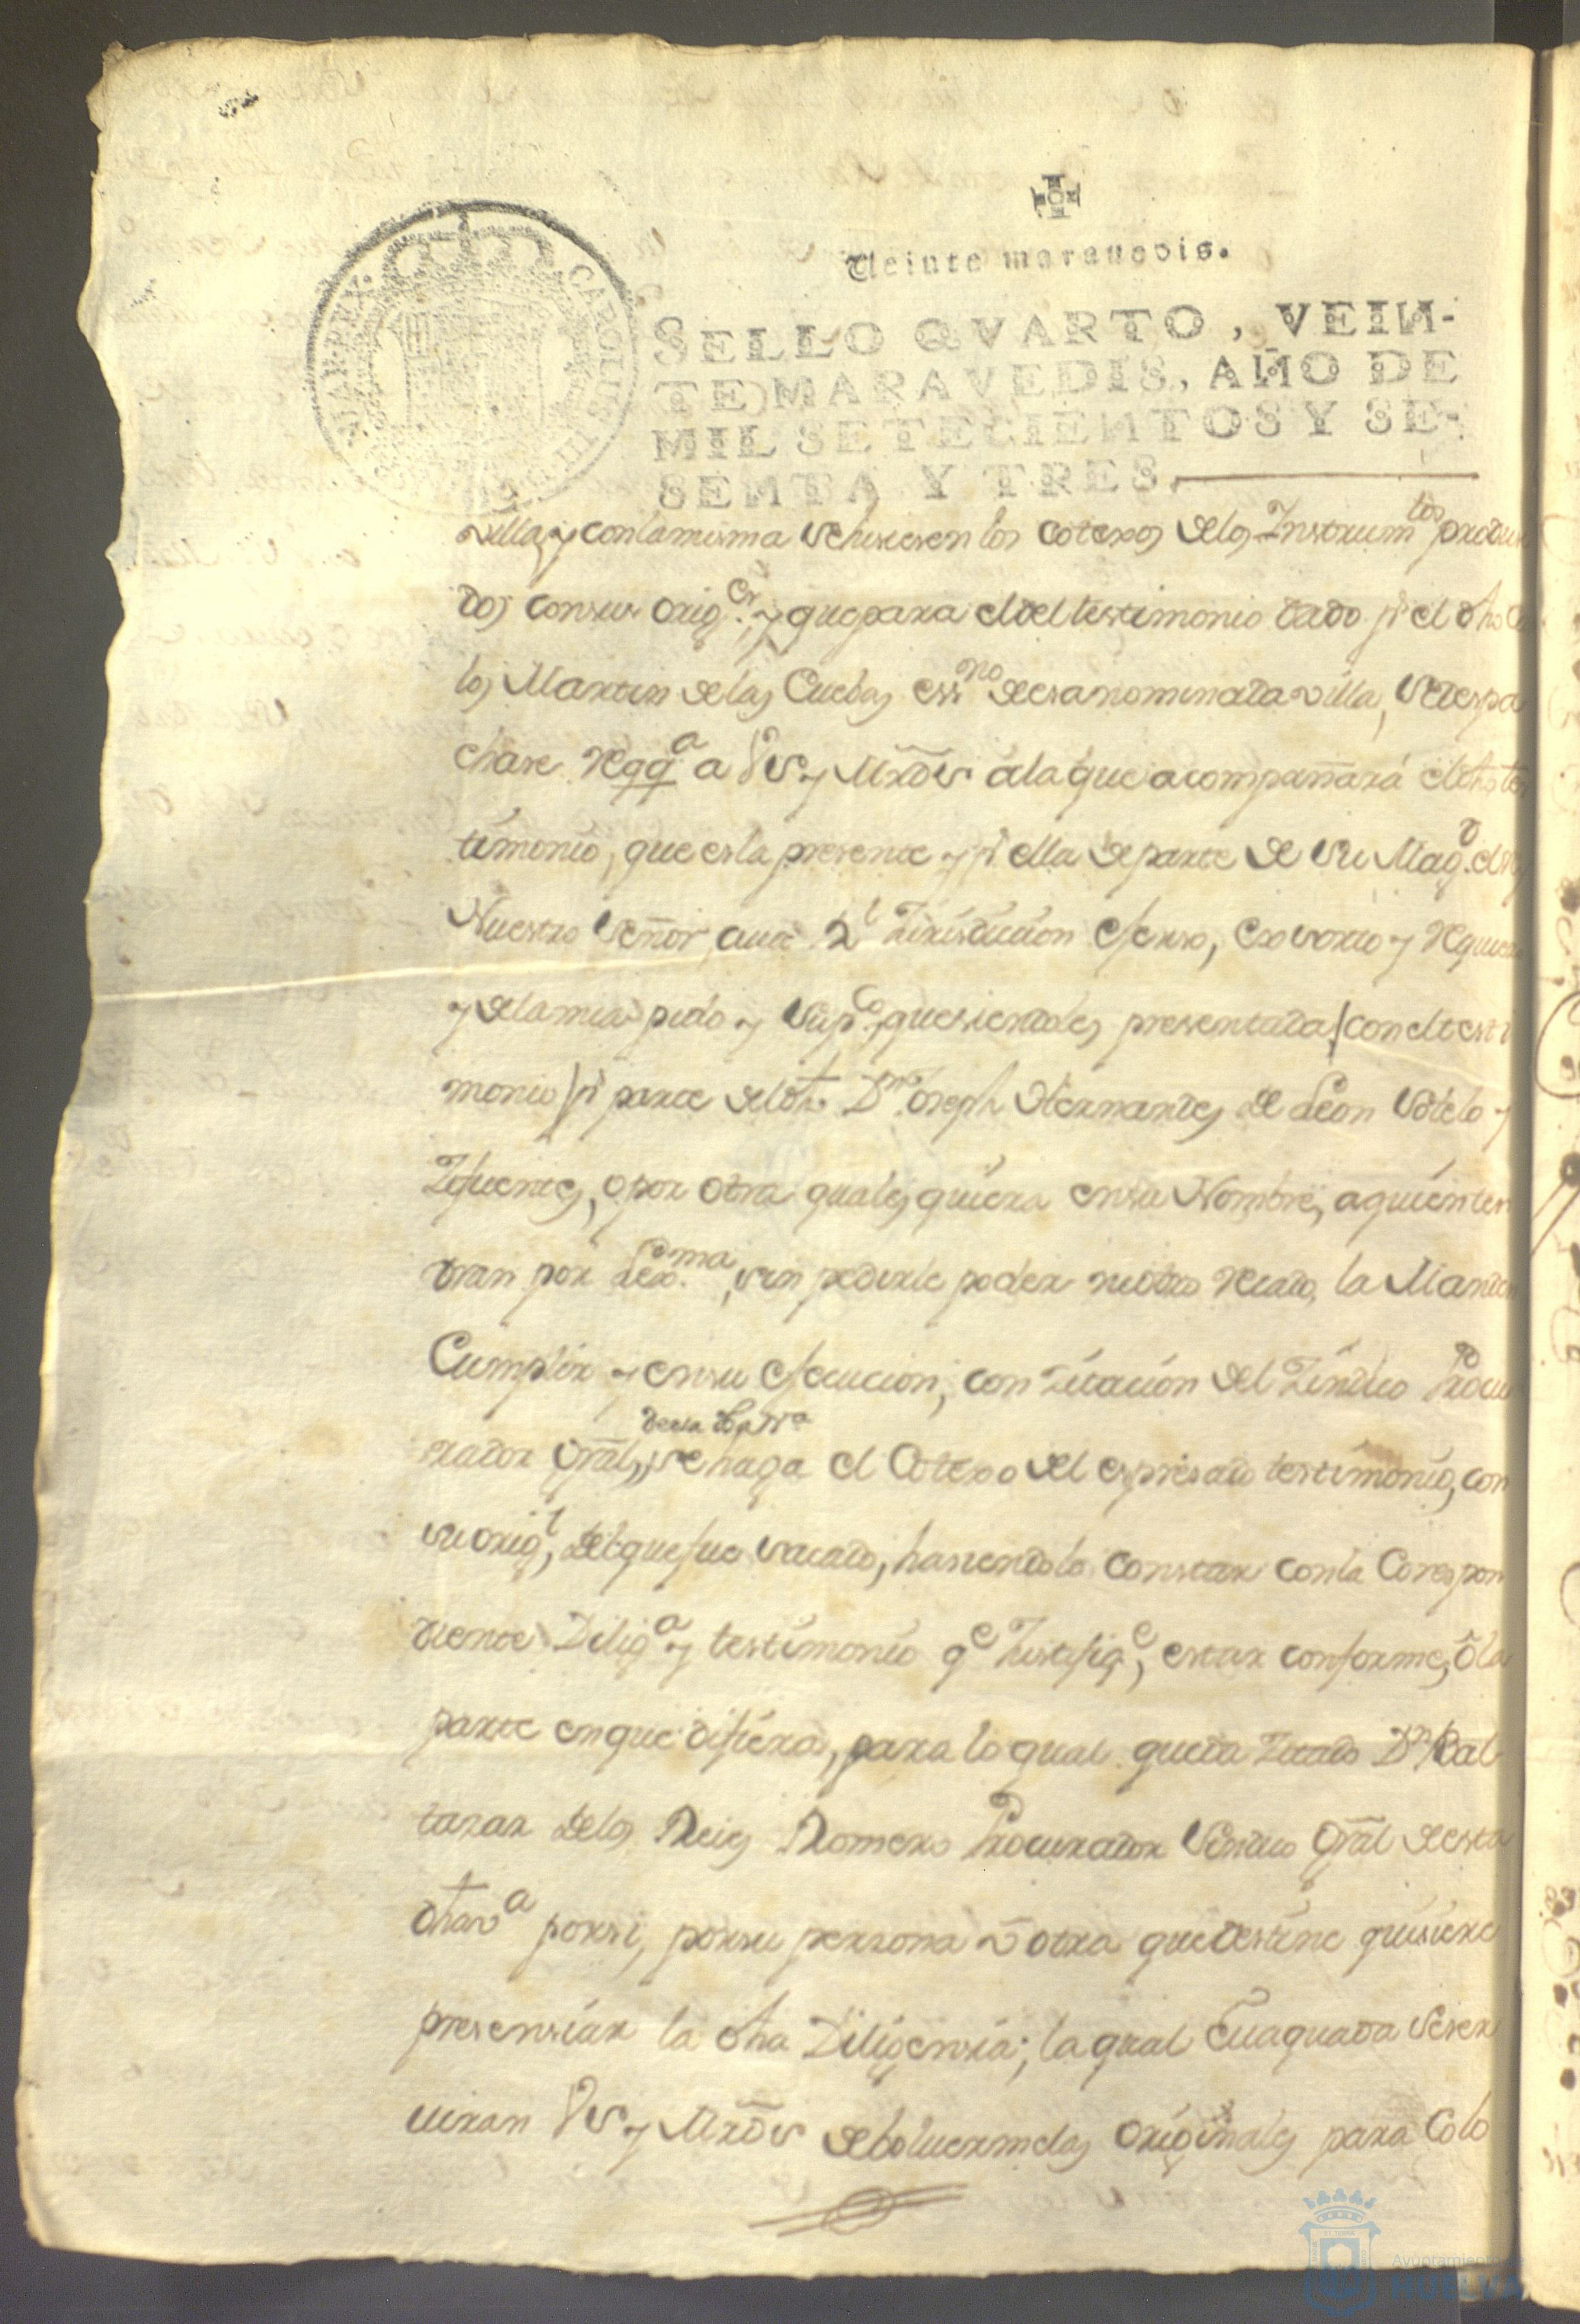 Veinte marauedis.
SELLO QVARTO, VEIN-
TE MARAVEDIS, AÑO DE
MIL SETECIENTOS Y SE-
SENTA Y TRES.
CAROLUS III D. G. HISPANIAR. REX.
villa, y con la misma se hisiesen los cotexos de los Instrumtos produsi
dos con sus origes., y que para el del testimonio dado pr el dho
los Martin de las Cuebas essno de esa nominada villa, se despa
chase Reqqa a Vs y Mrdes a la que acompañará el dho tes
timonio, que es la presente y pr ella de parte de su Magd. el Rey
Nuestro Señor, cuia Rl Jurisdicion exerso, exsorto y Requiero
y de la mia pido y supco, que siendoles presentada (con el testi
monio) pr parte del dho Dn Joseph Hernandes de Leon Sotelo y
Zifuentes, o por otra qualesquiera en su Nombre, a quien ten
dran por Lexma, sin pedirle poder ni otro recado, la Manden
Cumplir y en su execucion, con zitacion del Zindico Procu
de esa dha va
rador Gral, se haga el Cotexo del expresado testimonio, con
su origl, del que fue sacado, hasiendolo constar con la Correspon
diente Diliga y testimonio qe Justifiqe, estar conforme, ó la
parte en que difiera, para lo qual queda zitado Dn Bal
tasar de los Reies Romero Procurador Sindico Gral de esta
dha va por si, por su persona ú otra que destine quisiere
presensiar la dha Diligensia; la qual Euaquada se ser
uiran Vs y Mrdes deboluermelas originales para Colo
Ayuntamiento de
HUELVA